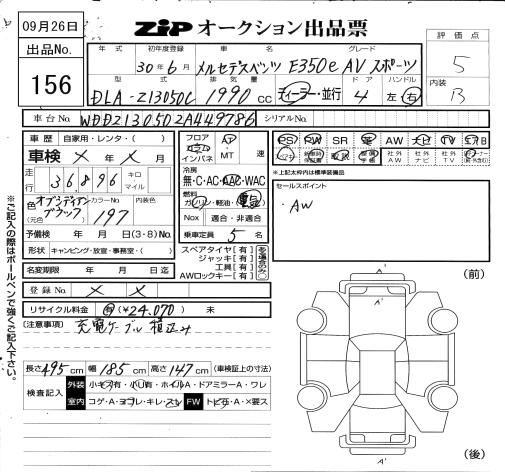 09月26日
ZIP オークション出品票
出品No.
156
評価点
5
内装
B
年式 初年度登録 車名 グレード
30年6月 メルセデスベンツ E350e AV スポーツ
型式 排気量 ドア ハンドル
DLA-213050C 1990cc ディーラー・並行 4 左・右
車台No. WDD2130502A449786 シリアルNo.
車歴 自家用・レンタ・( )
車検 × 年 × 月
走行 36,896 キロ マイル
色(元色) オブシディアンブラック カラーNo. 197 内装色
予備検 年 月 日(3・8)No.
形状 キャンピング・放宣・事務室・( )
名変期限 年 月 日迄
登録No. × ×
リサイクル料金 有(¥24,070) 未
フロア コラム インパネ AT MT 速
冷房 無・C・AC・AAC・WAC
燃料 ガソリン・軽油・電気
Nox 適合・非適合
乗車定員 5 名
スペアタイヤ[有]
ジャッキ[有]
工具[有]
AWロックキー[有]
ある場合のみ○
PS PW SR 革 AW ナビ TV エアB
社外AW 社外ナビ 社外TV
※上記太枠内は標準装備品
セールスポイント
・AW
(注意事項) 充電ケーブル積込み
長さ495cm 幅185cm 高さ147cm (車検証上の寸法)
検査記入 外装 小キズ有・小凹有・ホイルA・ドアミラーA・ワレ
室内 コゲ・A・ヨゴレ・キレ・スレ FW トビ石・A・×要ス
※ご記入の際はボールペンで強くご記入下さい。
(前)
A'
A'
A'
(後)